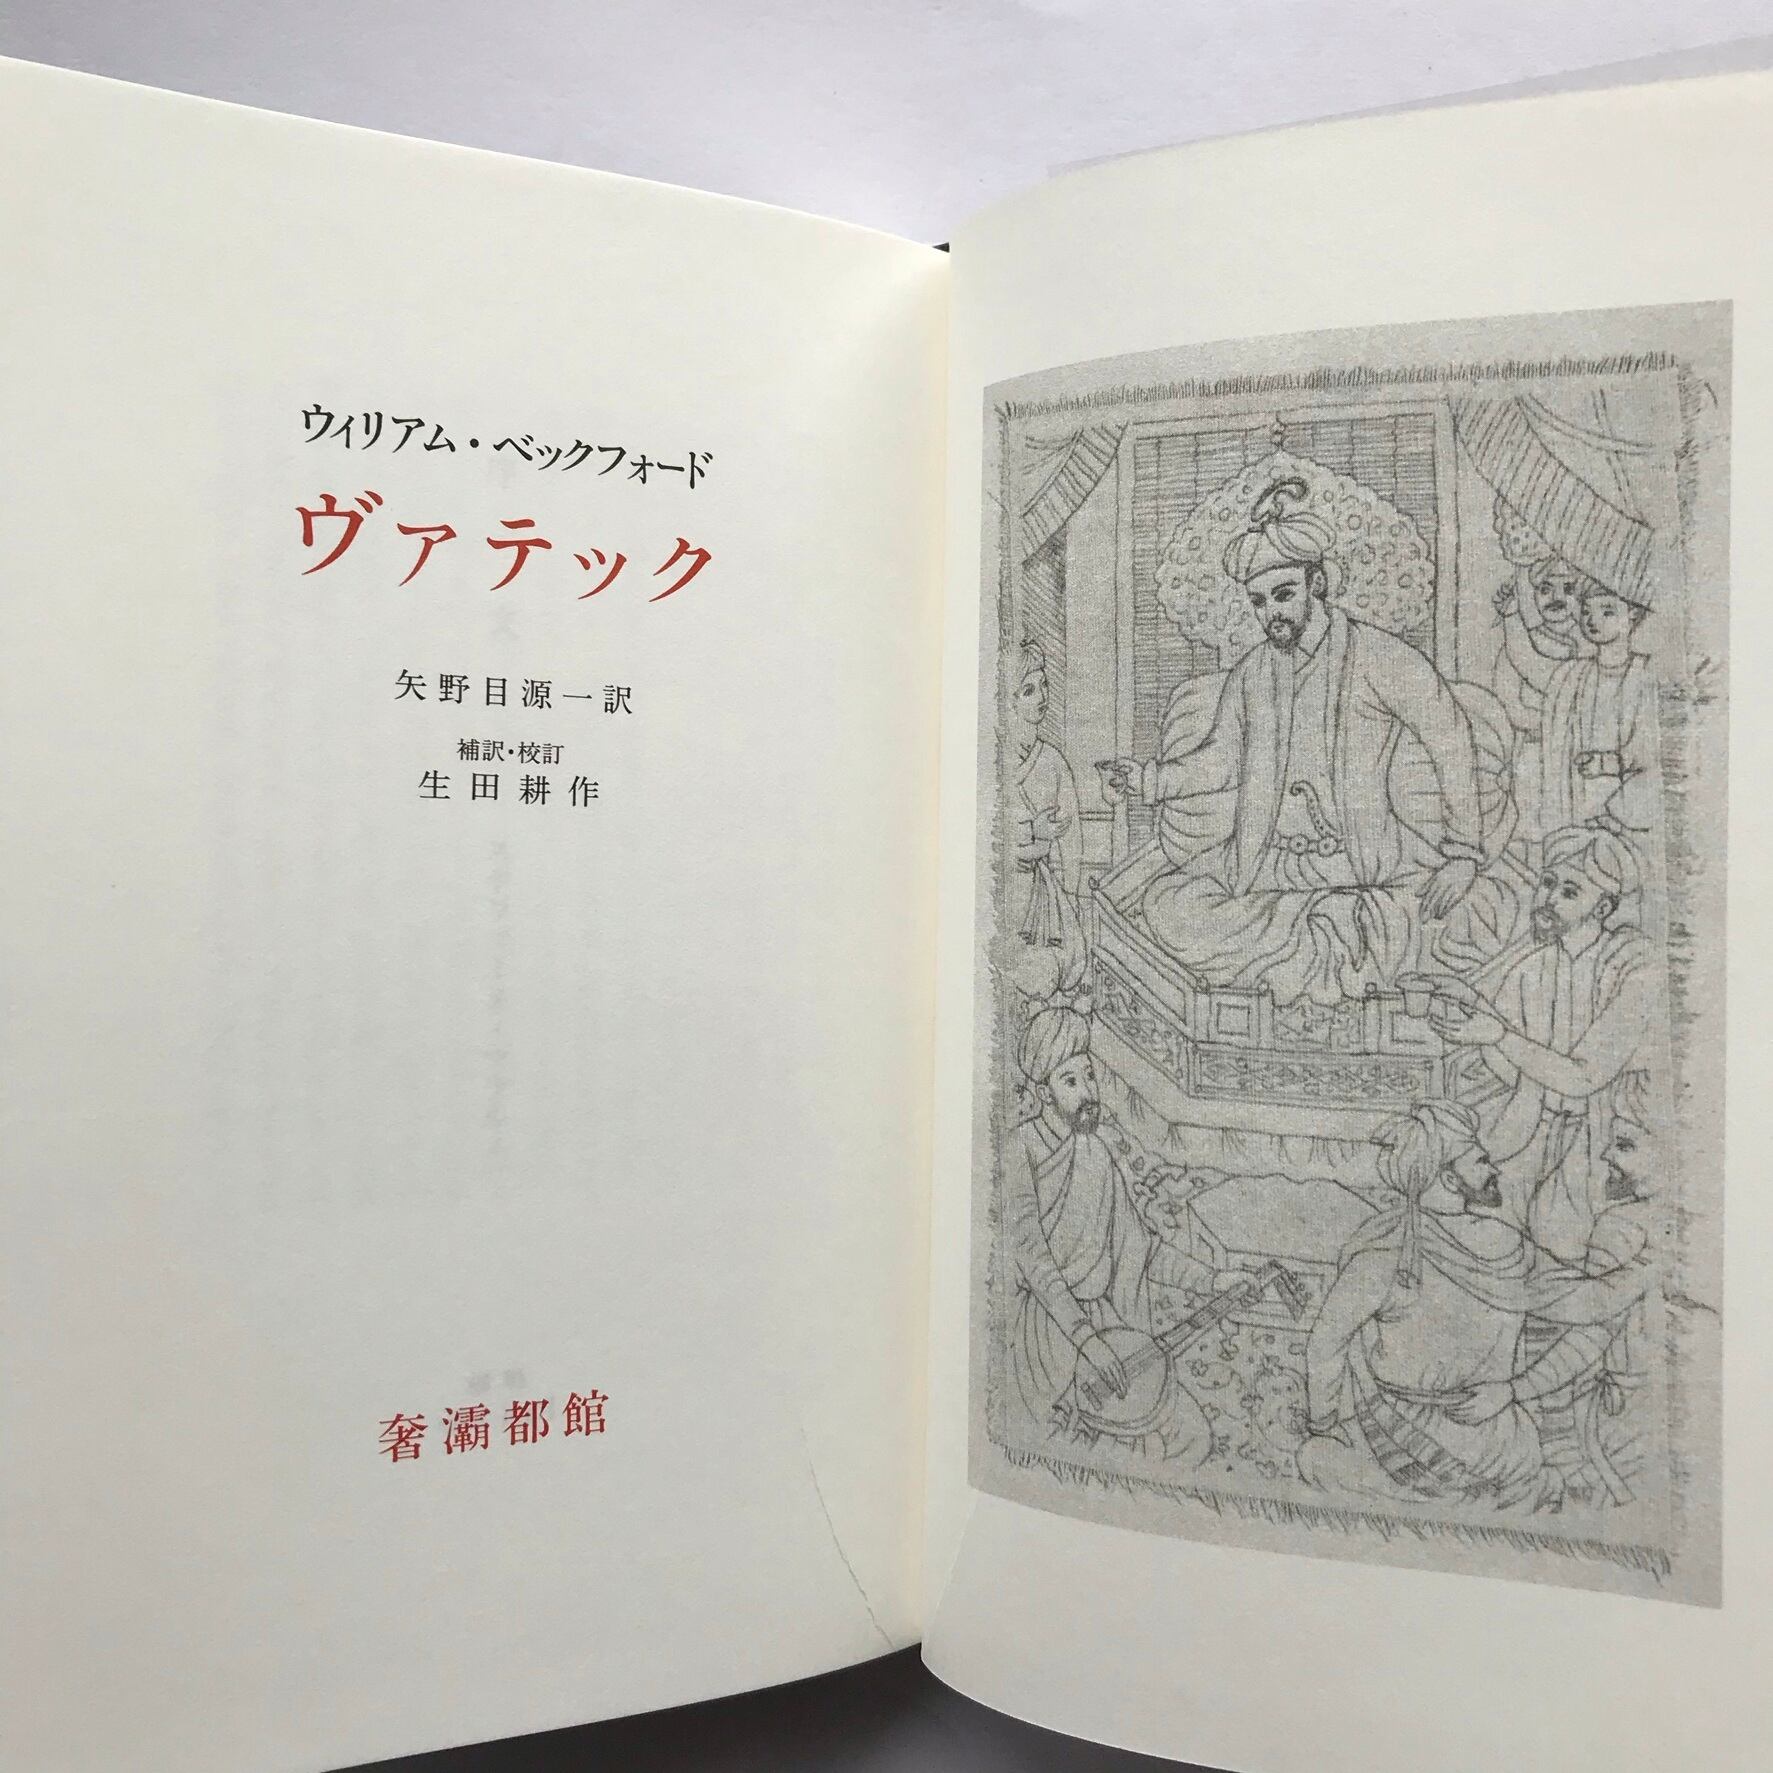 ウィリアム・ベックフォード
ヴァテック
矢野目源一訳
補訳・校訂
生田耕作
奢灞都館